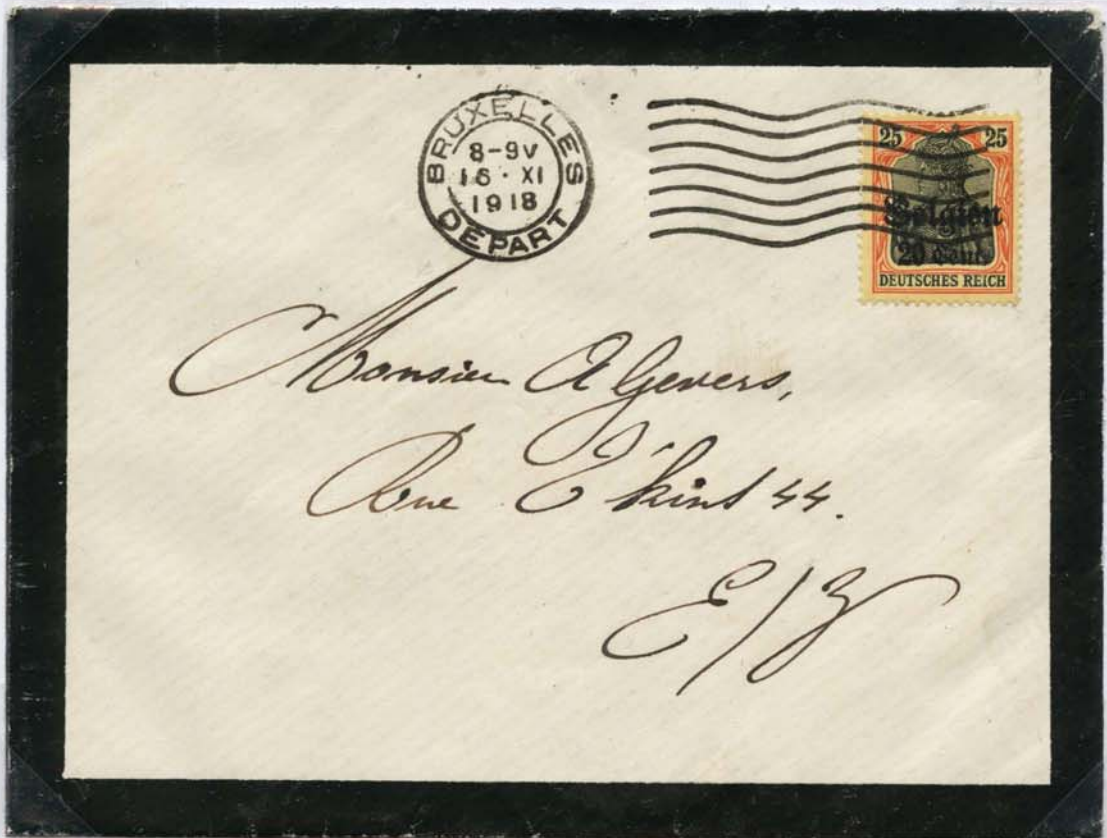 BRUXELLES
8-9V
16 · XI
1918
DEPART
25 25
Belgien
20 Cent.
DEUTSCHES REICH
Monsieur A Gevers,
Rue T'Kint 44.
E/V